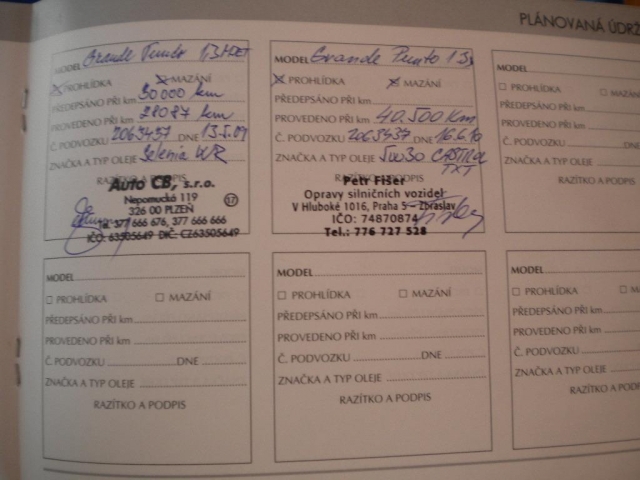 PLÁNOVANÁ ÚDRŽ
MODEL Grande Punto 1.3 MJET
PROHLÍDKA MAZÁNÍ
PŘEDEPSÁNO PŘI km 30 000 km
PROVEDENO PŘI km 28087 km
Č. PODVOZKU 2063437 DNE 13.5.09
ZNAČKA A TYP OLEJE Selenia WR
RAZÍTKO A PODPIS
Auto CB, s.r.o.
Nepomucká 119
326 00 PLZEŇ
Tel. 377 666 676, 377 666 666
IČO: 63505649 DIČ: CZ63505649
MODEL Grande Punto 1.3
PROHLÍDKA MAZÁNÍ
PŘEDEPSÁNO PŘI km
PROVEDENO PŘI km 40.500 Km
Č. PODVOZKU 2063437 DNE 16.6.10
ZNAČKA A TYP OLEJE 5W30 CASTROL
TXT
Petr Fišer
Opravy silničních vozidel
V Hluboké 1016, Praha 5 - Zbraslav
IČO: 74870874
Tel.: 776 727 528
MODEL
PROHLÍDKA
PŘEDEPSÁNO PŘI km
PROVEDENO PŘI km
Č. PODVOZKU
ZNAČKA A TYP OLEJE
RAZÍTKO A
MODEL
PROHLÍDKA MAZÁNÍ
PŘEDEPSÁNO PŘI km
PROVEDENO PŘI km
Č. PODVOZKU DNE
ZNAČKA A TYP OLEJE
RAZÍTKO A PODPIS
MODEL
PROHLÍDKA MAZÁNÍ
PŘEDEPSÁNO PŘI km
PROVEDENO PŘI km
Č. PODVOZKU DNE
ZNAČKA A TYP OLEJE
RAZÍTKO A PODPIS
MODEL
PROHLÍDKA
PŘEDEPSÁNO PŘI km
PROVEDENO PŘI km
Č. PODVOZKU
ZNAČKA A TYP OLEJE
RAZÍTKO A P